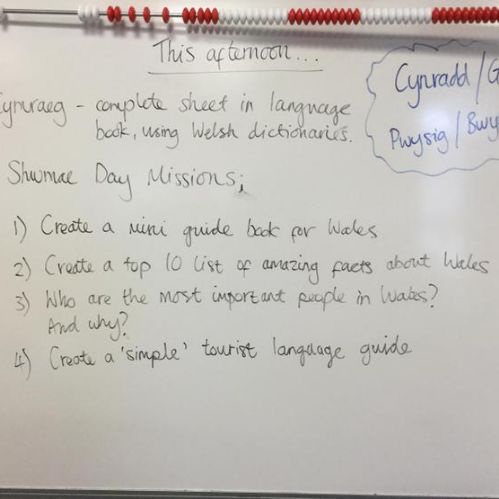 This afternoon...
Cymraeg - complete sheet in language
book, using Welsh dictionaries.
Shwmae Day Missions;
1) Create a mini guide book for Wales
2) Create a top 10 list of amazing facts about Wales
3) Who are the most important people in Wales?
And why?
4) Create a 'simple' tourist language guide
Cynradd / G
Pwysig / Bwy